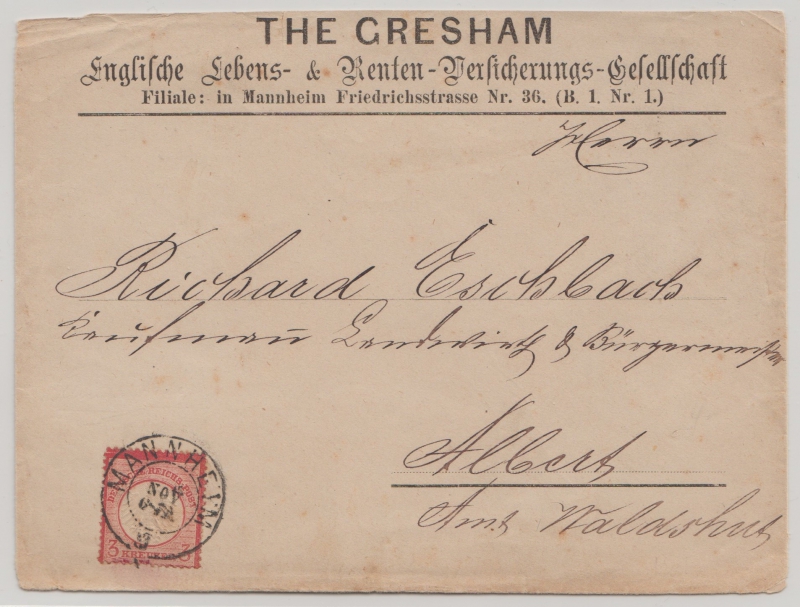 THE GRESHAM
Englische Lebens- & Renten-Versicherungs-Gesellschaft
Filiale: in Mannheim Friedrichsstrasse Nr. 36. (B. 1. Nr. 1.)
Herrn
Richard Eschbach
Kaufmann Landwirth & Bürgermeister
Albert
Amt Waldshut
MANNHEIM
NOV
REICHS-POST
3 KREUZER 3